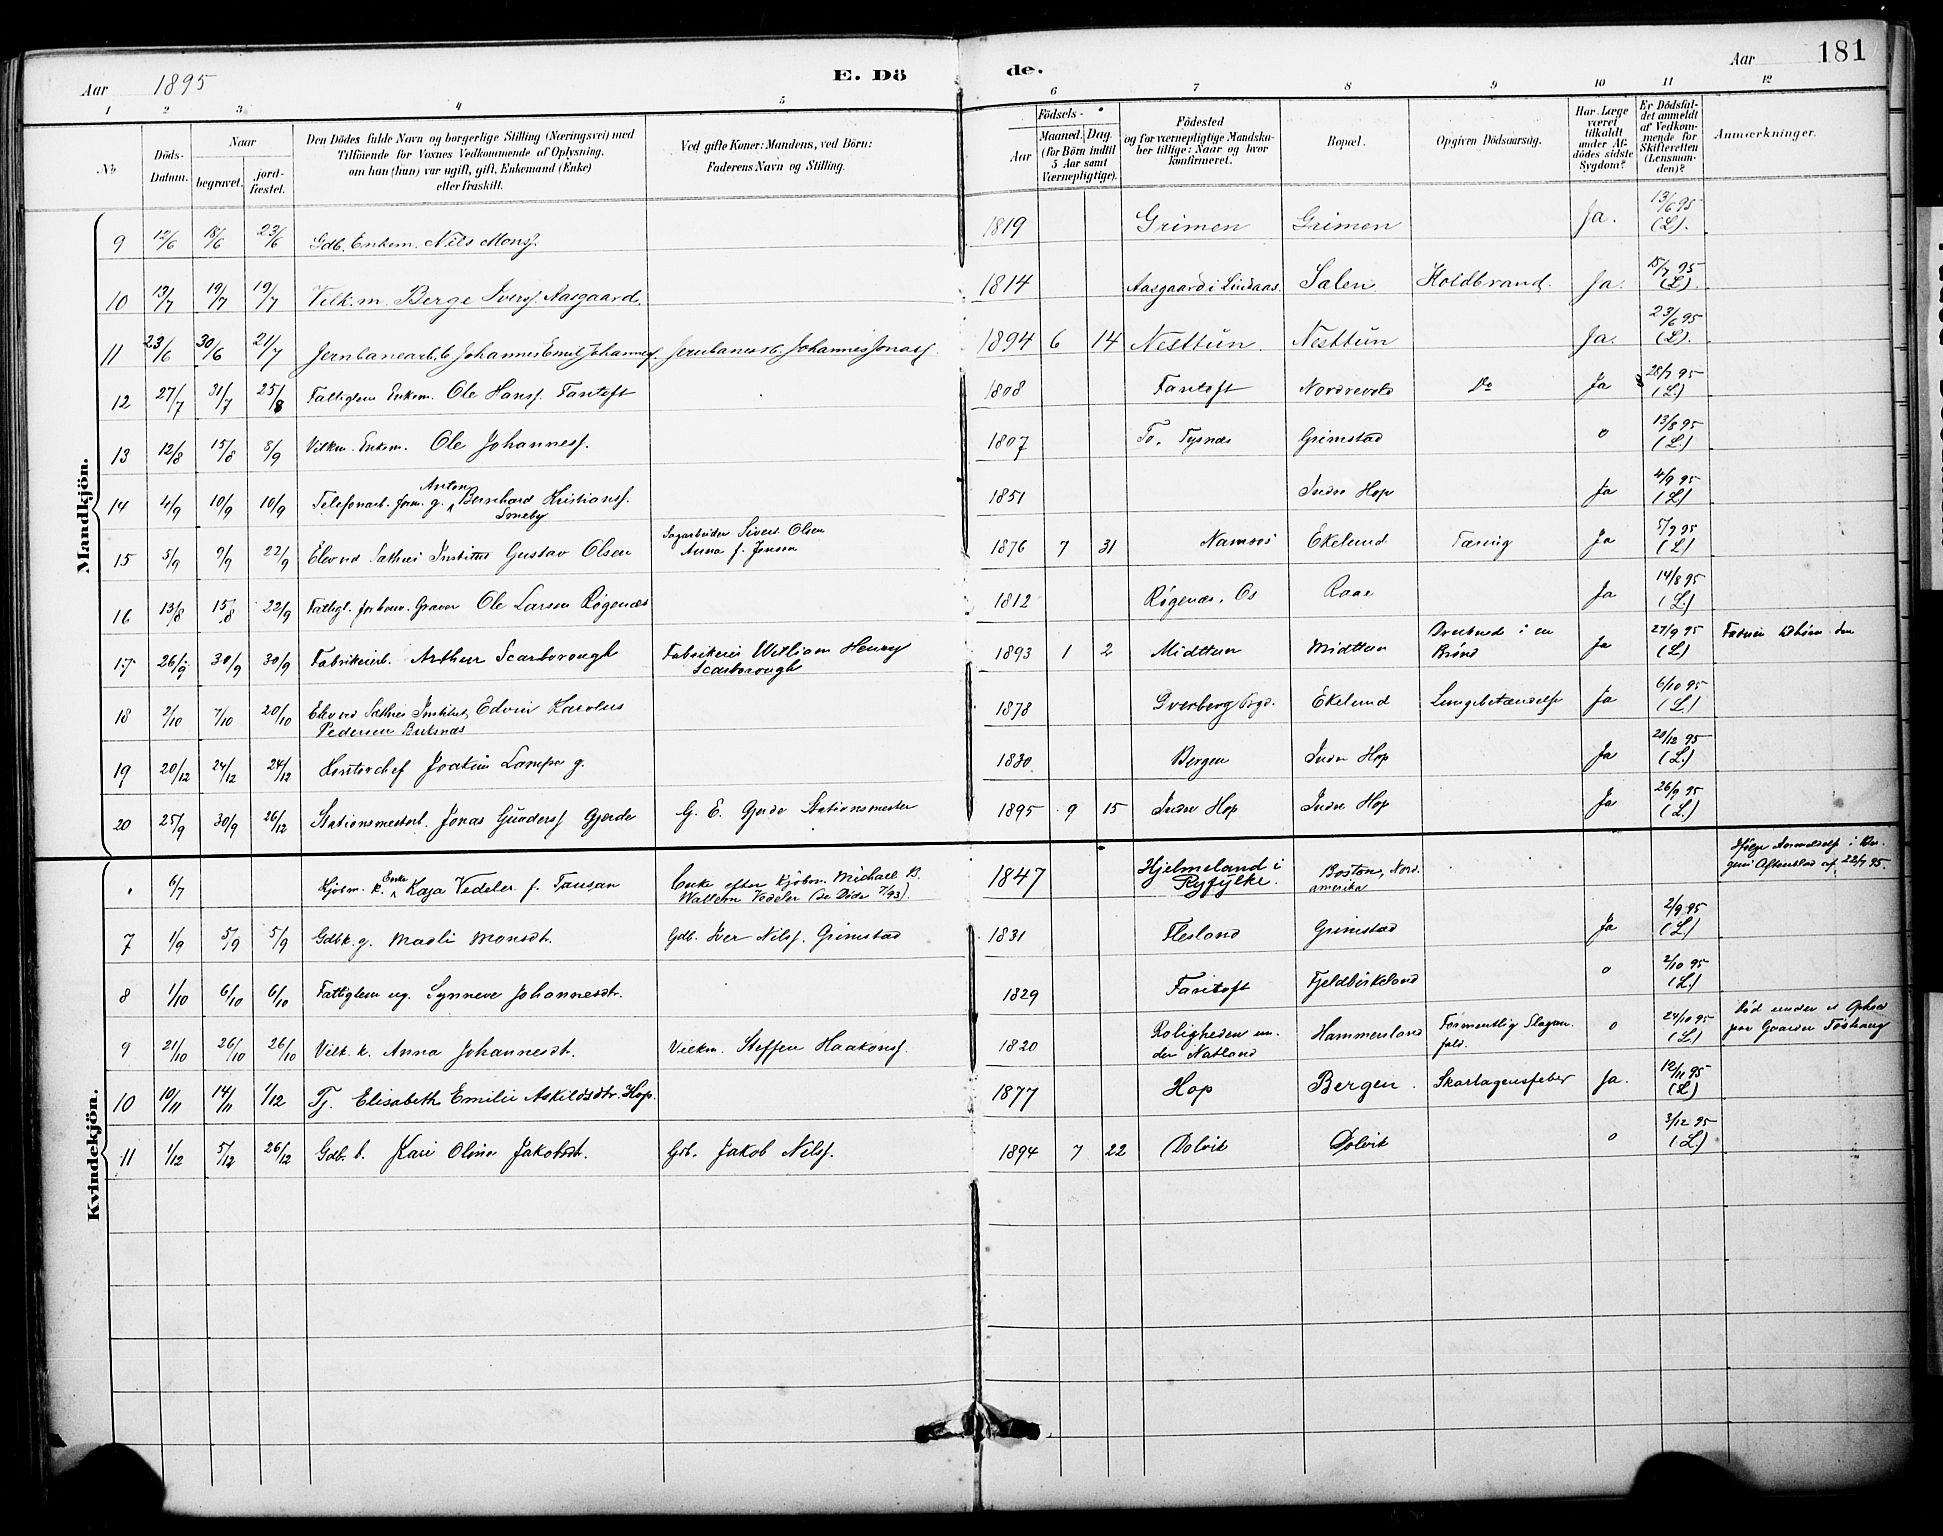 Aar 1895 E. Dö de. Aar 181
1 2 3 4 5 6 7 8 9 10 11 12
No
Döds-Datum.
Naar
begravet.
jord-fæstet.
Den Dödes fulde Navn og borgerlige Stilling (Næringsvei) med
Tilföiende for Voxnes Vedkommende af Oplysning,
om han (hun) var ugift, gift, Enkemand (Enke)
eller fraskilt.
Ved gifte Koner: Mandens, ved Börn:
Faderens Navn og Stilling.
Födsels-
Aar
Maaned. Dag.
(for Börn indtil
5 Aar samt
Værnepligtige).
Födested
og for værnepligtige Mandska-
ber tillige: Naar og hvor
konfirmeret.
Bopæl.
Opgiven Dödsaarsag.
Har Læge
været
tilkaldt
under Af-
dödes sidste
Sygdom?
Er Dödsfal-
det anmeldt
af Vedkom-
mende for
Skifteretten
(Lensman-
den)?
Anmærkninger.
Mandkjön.
9 12/6 18/6 23/6 Gdb. Enkem. Nils Monsf. 1819 Grimen Grimen Ja. 13/6 95 (L).
10 13/7 19/7 19/7 Vilk.m. Berge Iversf. Aasgaard. 1814 Aasgaard i Lindaas. Salen Koldbrand. Ja. 15/7 95 (L).
11 23/6 30/6 21/7 Jernbanearb. b. Johannes Emil Johannesf. Jernbanearb. Johannes Jonasf. 1894 6 14 Nesttun Nesttun Ja. 23/6 95 (L).
12 27/7 31/7 25/8 Fattiglem Enkem. Ole Hansf. Fantoft 1808 Fantoft Nordrevold Do Ja 28/7 95 (L.)
13 12/8 15/8 8/9 Vilkm. Enkem. Ole Johannesf. 1807 Tysnæs Grimstad o 13/8 95 (L.)
14 4/9 10/9 10/9 Telefonarb. form. g. Anton Bernhard Kristiansf. 1851 Indre Hop Ja 4/9 95 (L)
15 5/9 9/9 22/9 Elev ved Sæthres Institut Gustav Olsen Sagarbeider Sivert Olsen
Anna f. Jensen 1876 7 31 Namsos Ekelund Tæring Ja 5/9 95 (L)
16 13/8 15/8 22/9 Fattigl. forhenv. Graver Ole Larsen Røgenæs 1812 Røgenæs, Os Raae Ja 14/8 95 (L.)
17 26/9 30/9 30/9 Fabrikeierb. Arthur Scarborough Fabrikeier William Henry
Scarborough 1893 1 2 Midttun Midttun Druknet i en
Brønd Ja 27/9 95 (L)
18 2/10 7/10 20/10 Elev ved Sæthres Institut, Edvin Karolus
Pedersen 1878 Dverberg Ekelund Lungebetændelse Ja 6/10 95 (L.)
19 20/12 24/12 24/12 Kontorchef Joakim Lampe g. 1830 Bergen Indre Hop Ja 20/12 95 (L.)
20 25/9 30/9 26/12 Stationsmesterb. Jonas Gundersf Gjerde G. E. Gjerde Stationsmester 1895 9 15 Indre Hop Indre Hop Ja 26/9 95 (L.)
Kvindekjön.
6/7 Kjøbm. k. Enke Kaja Vedeler f. Tausan Enke efter Kjøbm. Michael B.
Wallem Vedeler 1847 Hjelmeland i
Ryfylke. Boston, Nord.
amerika
7 1/9 5/9 5/9 Gdbk. g. Madli Monsdt. Gdb. Iver Nilsf. Grimstad 1831 Flesland Grimstad Ja 2/9 95 (L.)
8 1/10 6/10 6/10 Fattiglem ug. Synneve Johannesdt. 1829 Fantoft Fjeldbirkeland o 2/10 95 (L.)
9 21/10 26/10 26/10 Vilk. k. Anna Johannesdt. Vilkm. Steffen Haakonsf. 1820 Roligheden un-
der Natland Hammersland Formentlig Slagan-
fald. o 24/10 95 (L.) Død under et Ophold
paa Gaarden
10 10/11 14/11 1/12 Tj. Elisabeth Emilie Askildsdtr. Hop. 1877 Hop Bergen. Skarlagensfeber Ja. 12/11 95 (L)
11 1/12 5/12 26/12 Gdb. b. Kari Olina Jakobsdt. Gdb. Jakob Nilsf. 1894 7 22 Dolvik Dolvik o 3/12 95 (L.)